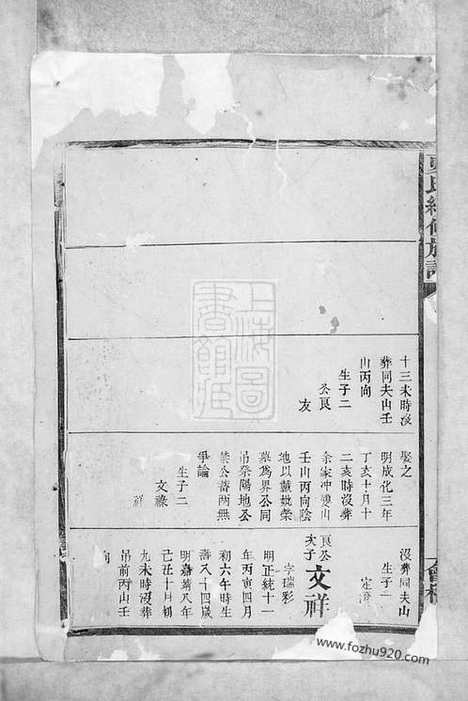 氏續修族譜
十三未時沒
葬同夫山壬
山丙向
生子二
公良
友
娶之
明成化三年
丁亥十月十
二亥時沒葬
余家冲蠻山
壬山丙向陰
地以
墓爲界公同
吊榮陽地公
禁公蓄兩無
爭論
生子二
文祿
祥
沒葬同夫山
生子一
良公
次子
文祥
字瑞彩
明正統十一
年丙寅四月
初六午時生
壽八十四歲
明嘉靖八年
己丑十月初
九未時沒葬
吊前丙山壬
向
上海圖
書館藏
www.fozhu920.com